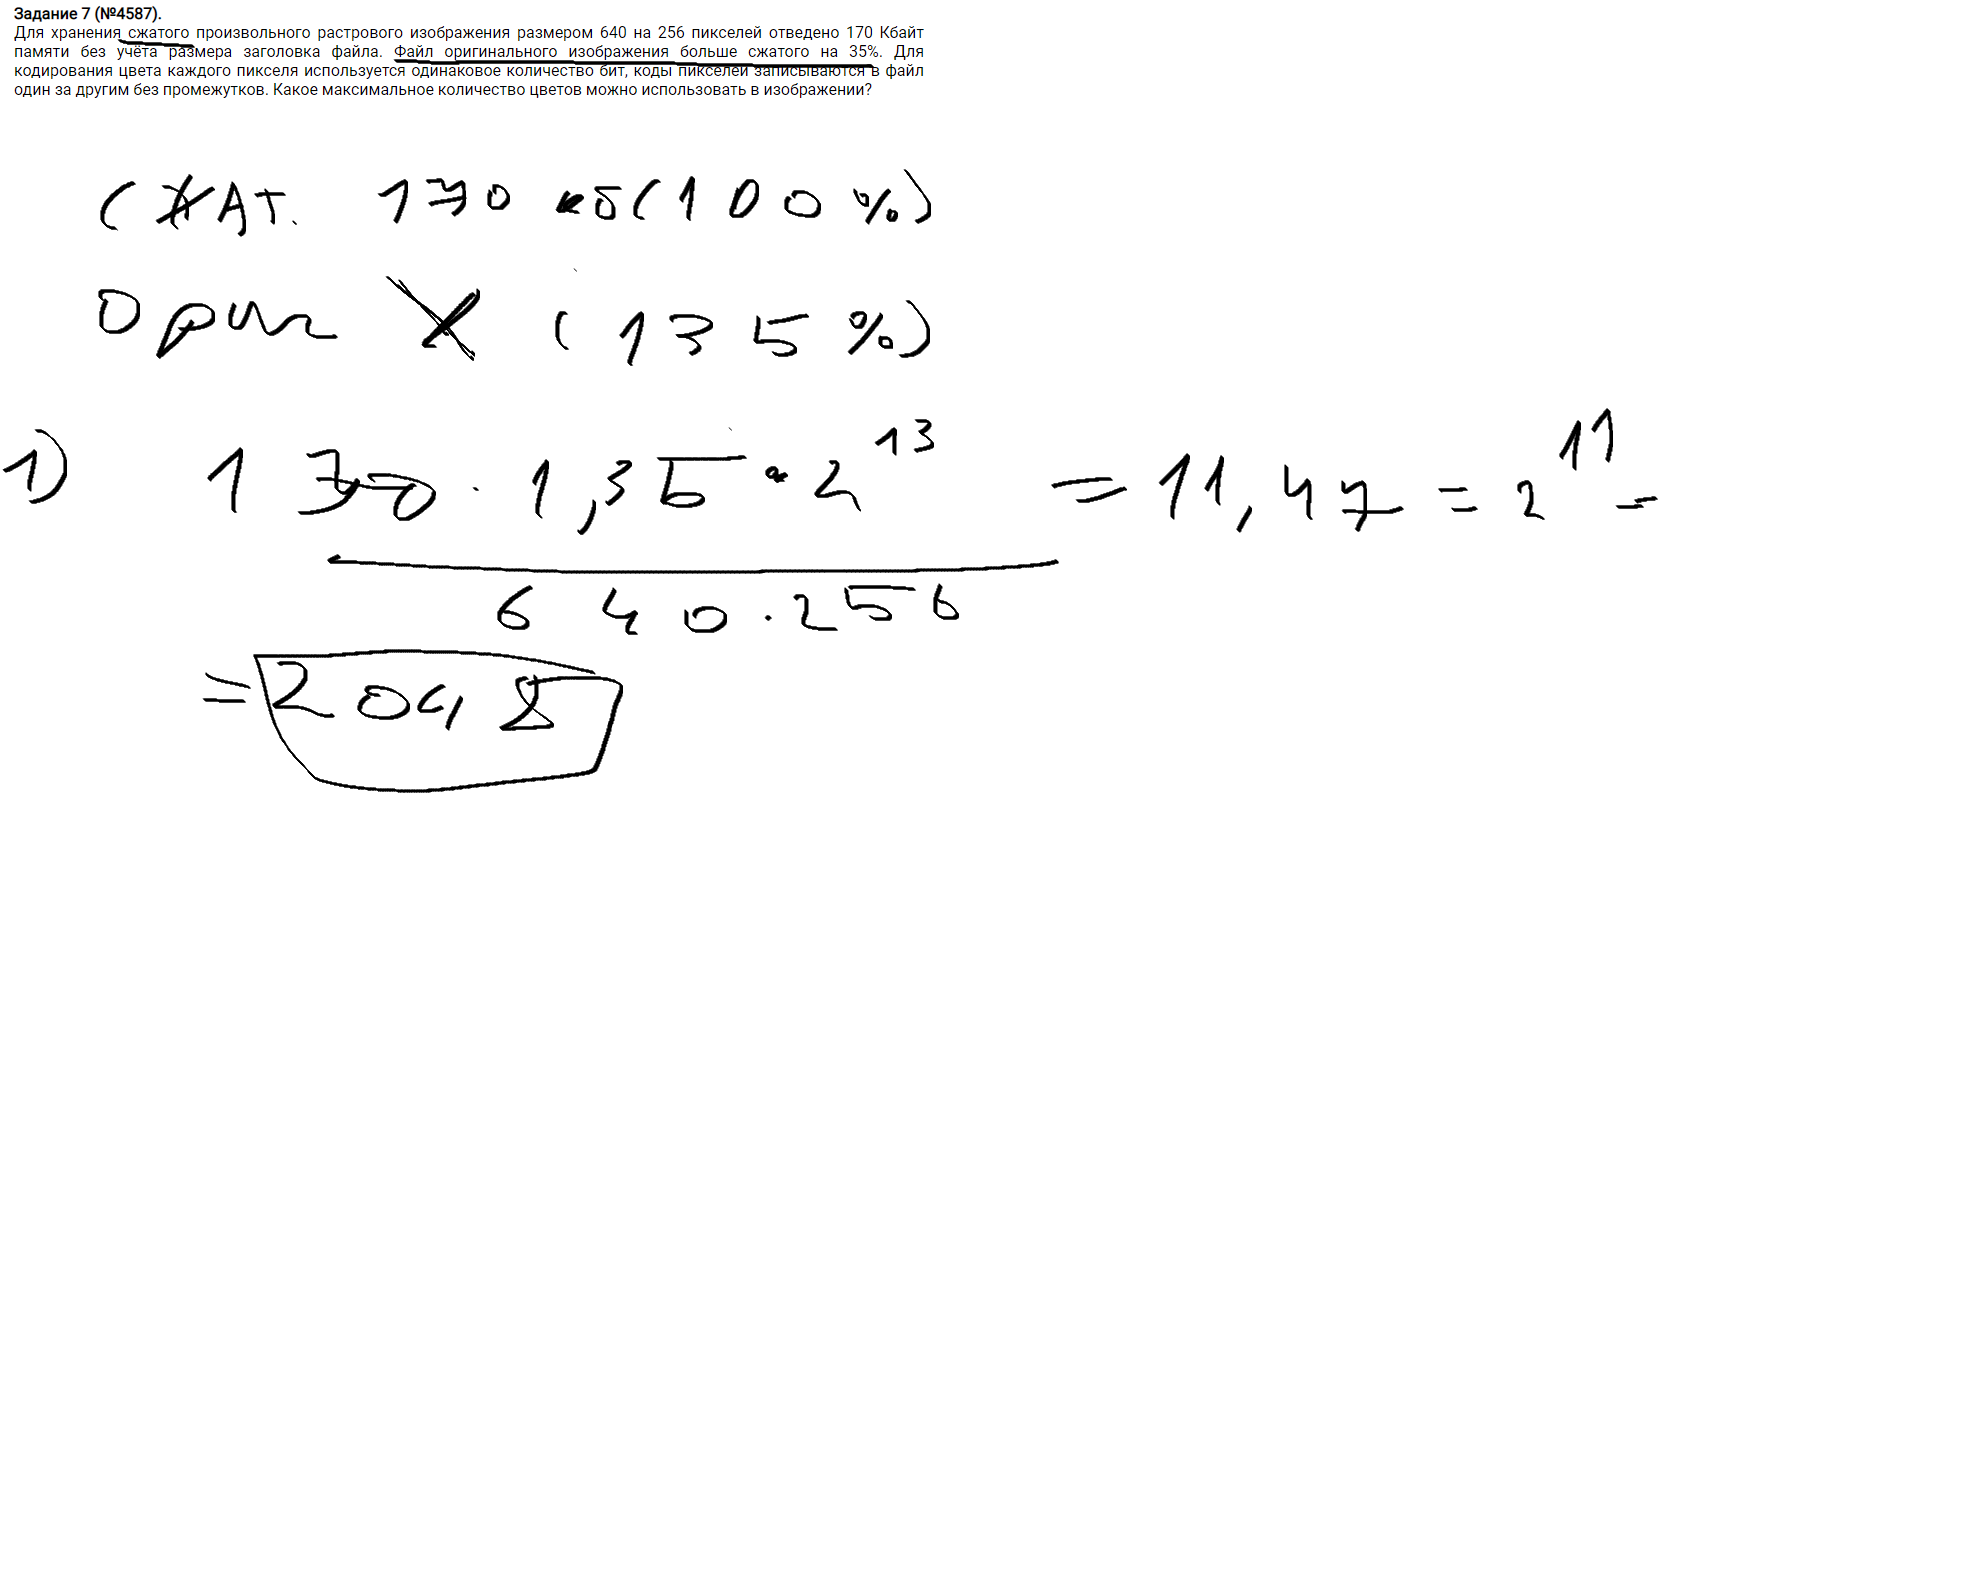 Задание 7 (№4587).
Для хранения сжатого произвольного растрового изображения размером 640 на 256 пикселей отведено 170 Кбайт
памяти без учёта размера заголовка файла. Файл оригинального изображения больше сжатого на 35%. Для
кодирования цвета каждого пикселя используется одинаковое количество бит, коды пикселей записываются в файл
один за другим без промежутков. Какое максимальное количество цветов можно использовать в изображении?
СЖАТ. 170 кб (100%)
Ориг X (135%)
1) 170 · 1,35 * 2^13 = 11,47 = 2^11 =
640 · 256
= 2048